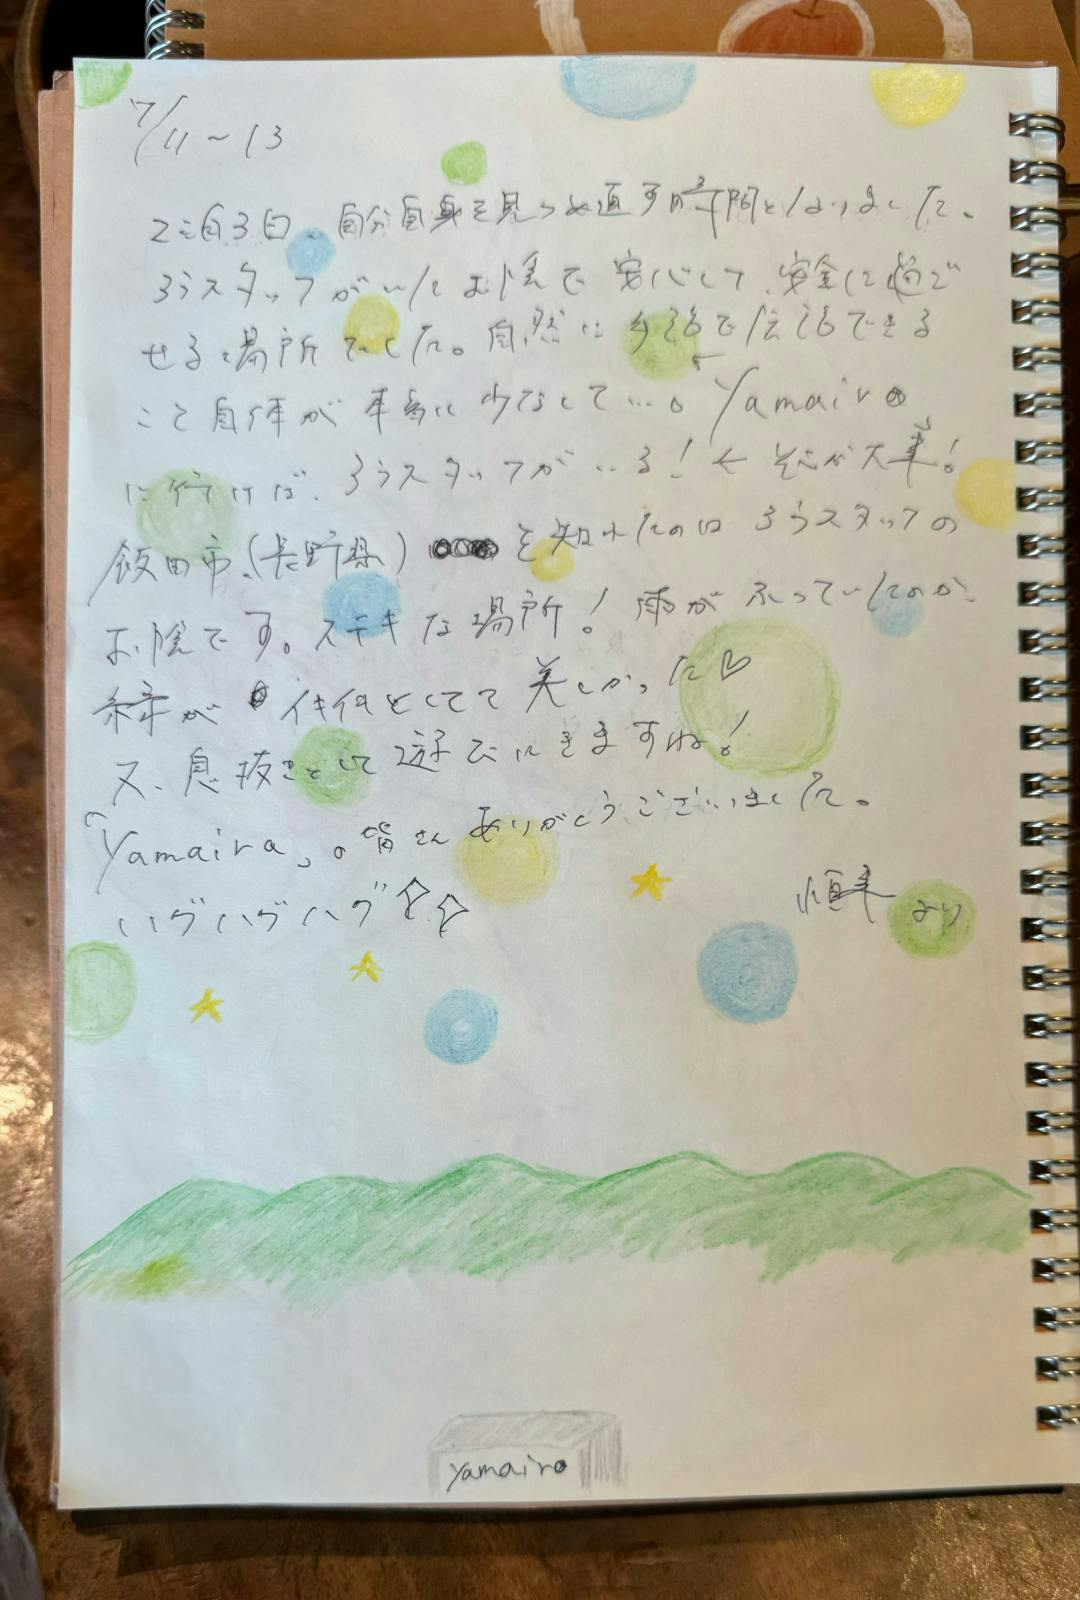 7/11~13
2泊3日、自分自身を見つめ直す時間となりました。
ろうスタッフがいたお陰で安心して、安全に過ご
せる場所でした。自然に手話で会話できる
こと自体が本当に少なくて…。Yamairo
に行けば、ろうスタッフがいる!←それが大事!
飯田市(長野県)を知れたのはろうスタッフの
お陰です。ステキな場所!雨がふっていたのか、
緑がイキイキとしてて美しかった♡
又、息抜きとして遊びにきますね!
「Yamairo」の皆さんありがとうございました。
ハグハグハグ☆☆
より
yamairo